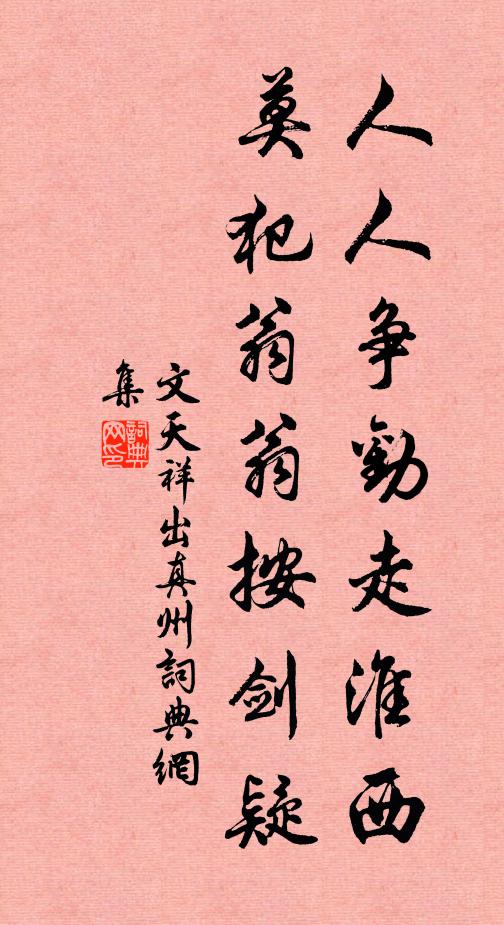 人人争勸走淮西
莫犯翁翁按剑疑
文天祥出真州詞典網
集
詞典
网印